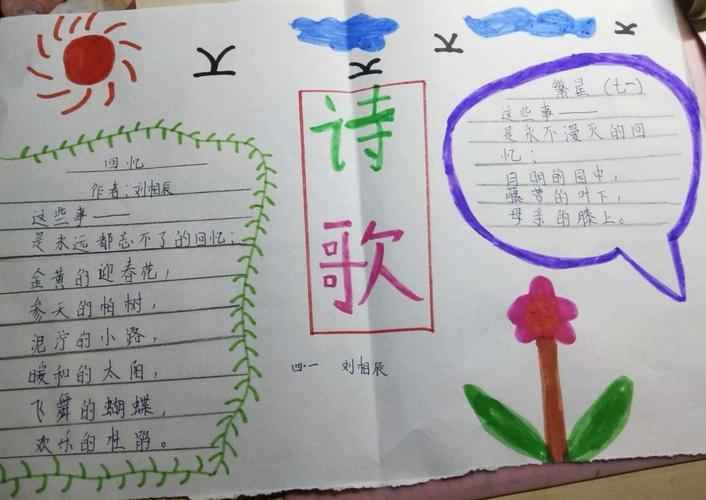 诗歌
回忆
作者：刘相辰
这些事——
是永远都忘不了的回忆：
金黄的迎春花，
参天的柏树，
泥泞的小路，
暖和的太阳，
飞舞的蝴蝶，
欢乐的
繁星（七一）
这些事——
是永不漫灭的回
忆：
月明的园中，
藤萝的叶下，
母亲的膝上。
四·一 刘相辰